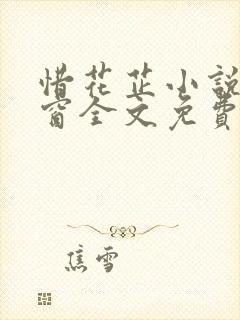 惜花芷小說
窗全文免費
焦雪